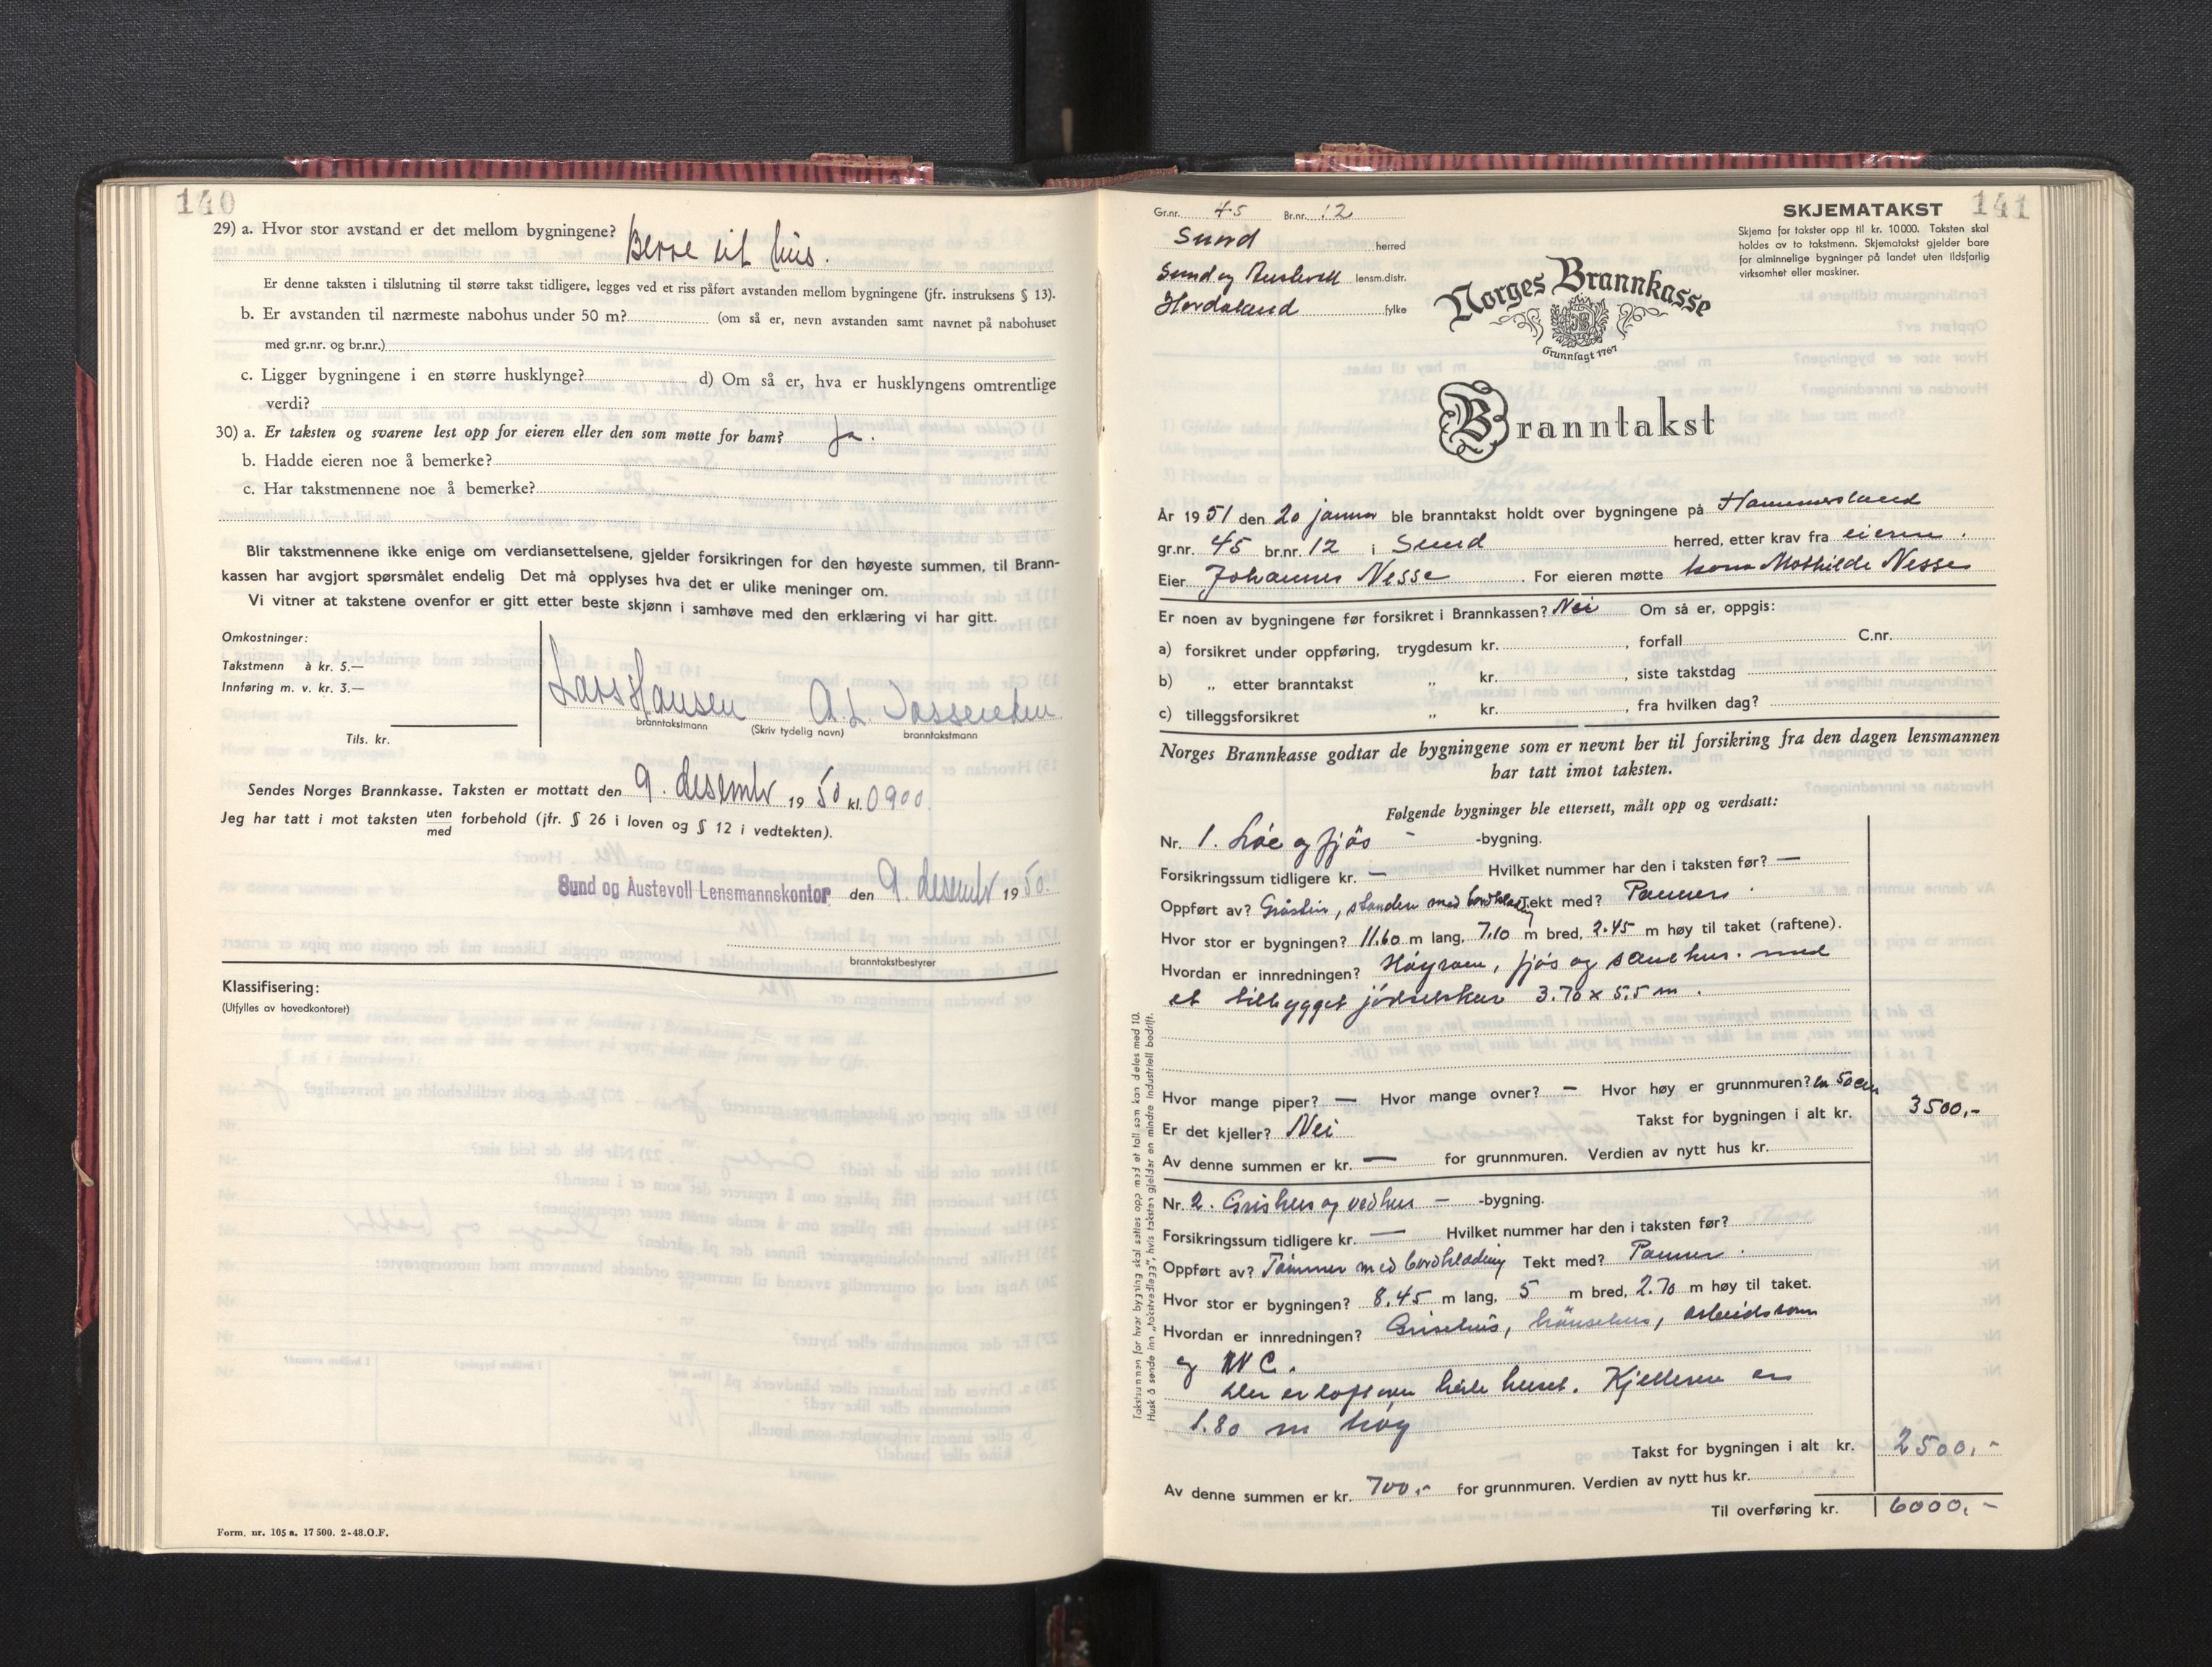 140
29) a. Hvor stor avstand er det mellom bygningene? Berre eit hus.
Er denne taksten i tilslutning til større takst tidligere, legges ved et riss påført avstanden mellom bygningene (jfr. instruksens § 13).
b. Er avstanden til nærmeste nabohus under 50 m? (om så er, nevn avstanden samt navnet på nabohuset
med gr.nr. og br.nr.)
c. Ligger bygningene i en større husklynge? d) Om så er, hva er husklyngens omtrentlige
verdi?
30) a. Er taksten og svarene lest opp for eieren eller den som møtte for ham? Ja.
b. Hadde eieren noe å bemerke?
c. Har takstmennene noe å bemerke?
Blir takstmennene ikke enige om verdiansettelsene, gjelder forsikringen for den høyeste summen, til Brann-
kassen har avgjort spørsmålet endelig Det må opplyses hva det er ulike meninger om.
Vi vitner at takstene ovenfor er gitt etter beste skjønn i samhøve med den erklæring vi har gitt.
Omkostninger:
Takstmenn à kr. 5.—
Innføring m. v. kr. 3.—
Tils. kr.
Lars Hansen A. L.
branntakstmann (Skriv tydelig navn) branntakstmann
Sendes Norges Brannkasse. Taksten er mottatt den 9. desembr 1950 kl. 0900.
Jeg har tatt i mot taksten uten/med forbehold (jfr. § 26 i loven og § 12 i vedtekten).
Sund og Austevoll Lensmannskontor den 9. desembr 1950.
branntakstbestyrer
Klassifisering:
(Utfylles av hovedkontoret)
Form. nr. 105 a. 17 500. 2-48.O.F.
141
Gr.nr. 45 Br.nr. 12
Sund herred
Sund og Austevoll lensm.distr.
Hordaland fylke
SKJEMATAKST
Skjema for takster opp til kr. 10000. Taksten skal
holdes av to takstmenn. Skjematakst gjelder bare
for alminnelige bygninger på landet uten ildsfarlig
virksomhet eller maskiner.
Norges Brannkasse
Grunnlagt 1767
Branntakst
År 1951 den 20 januar ble branntakst holdt over bygningene på Hammersland
gr.nr. 45 br.nr. 12 i Sund herred, etter krav fra eieren.
Eier Johannes Nesse For eieren møtte kona Mathilde Nesse
Er noen av bygningene før forsikret i Brannkassen? Nei Om så er, oppgis:
a) forsikret under oppføring, trygdesum kr. , forfall C.nr.
b) „ etter branntakst „ kr. , siste takstdag
c) tilleggsforsikret „ kr. , fra hvilken dag?
Norges Brannkasse godtar de bygningene som er nevnt her til forsikring fra den dagen lensmannen
har tatt imot taksten.
Følgende bygninger ble ettersett, målt opp og verdsatt:
Nr. 1. Løe og fjøs - -bygning.
Forsikringssum tidligere kr. — Hvilket nummer har den i taksten før? —
Oppført av? Gråstein, stander med bordkledning Tekt med? Panner.
Hvor stor er bygningen? 11.60 m lang, 7.10 m bred, 2.45 m høy til taket (raftene).
Hvordan er innredningen? Høyrom, fjøs og sauehus. med
et tilbygget jødselskur 3.70 x 5.5 m.
Hvor mange piper? — Hvor mange ovner? — Hvor høy er grunnmuren? ca 50 cm
Er det kjeller? Nei Takst for bygningen i alt kr. 3500,-
Av denne summen er kr. — for grunnmuren. Verdien av nytt hus kr.
Nr. 2. Grishus og vedhus — -bygning.
Forsikringssum tidligere kr. — Hvilket nummer har den i taksten før?
Oppført av? Tømmer med bordkledning Tekt med? Panner.
Hvor stor er bygningen? 8.45 m lang, 5 m bred, 2.70 m høy til taket.
Hvordan er innredningen? Grisehus, hønsehus, arbeidsrom
og WC.
Der er loft over hele huset. Kjelleren er
1.80 m høy
Takst for bygningen i alt kr. 2500,-
Av denne summen er kr. 700,- for grunnmuren. Verdien av nytt hus kr.
Til overføring kr. 6000,-
Takstsummen for hver bygning skal settes opp med et tall som kan deles med 10.
Husk å sende inn „takstvedlegg", hvis taksten gjelder en mindre industriell bedrift.